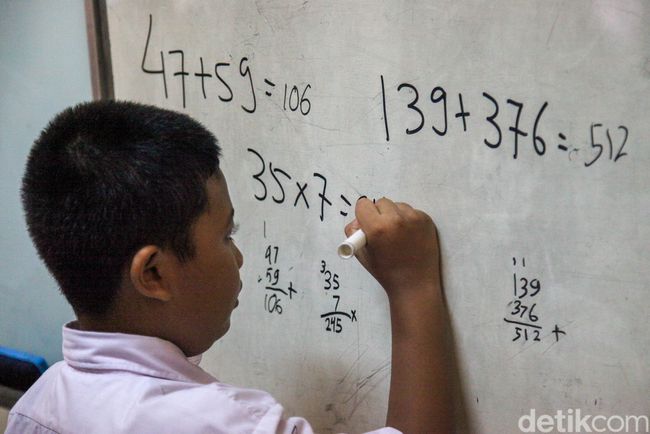 47+59=106
139+376=512
35×7=
1
47
59
106 +
3
35
7
245 ×
11
139
376
512 +
detikcom